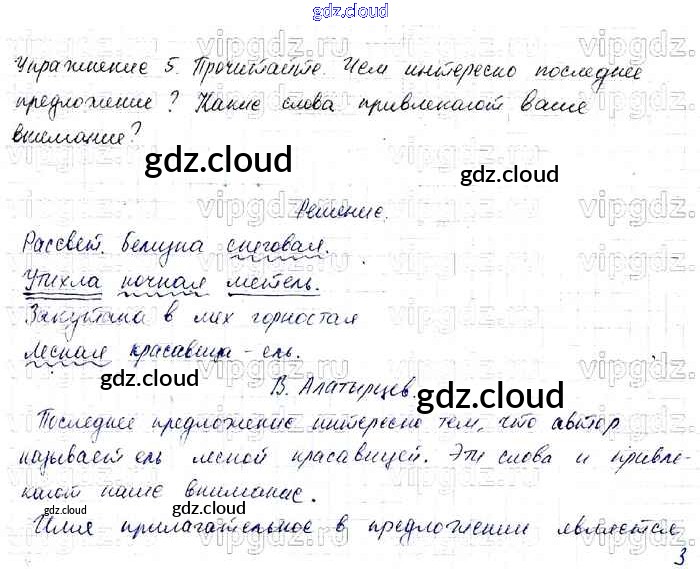 gdz.cloud
Упражнение 5. Прочитайте. Чем интересно последнее
предложение? Какие слова привлекают ваше
внимание?
gdz.cloud
gdz.cloud
Решение.
Рассвет. Белизна снеговая.
Утихла ночная метель.
Закутана в мех горностая
лесная красавица - ель.
gdz.cloud
В. Алатырцев.
gdz.cloud
Последнее предложение интересно тем, что автор
называет ель лесной красавицей. Эти слова и привле-
кают наше внимание.
gdz.cloud
gdz.cloud
Имя прилагательное в предложении является
3
vipgdz